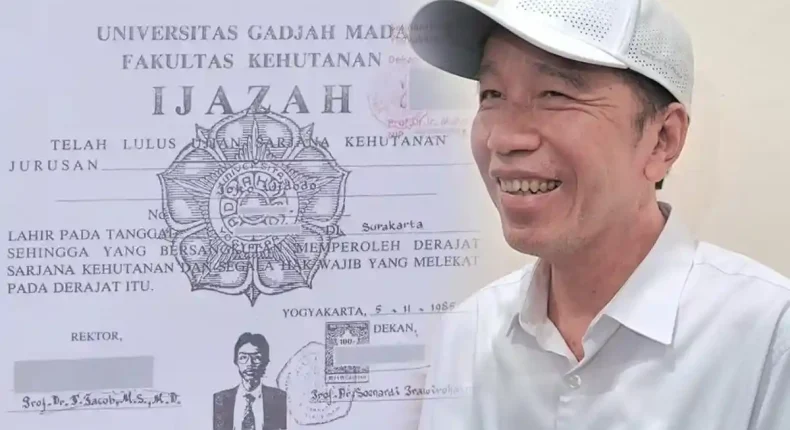 UNIVERSITAS GADJAH MADA
FAKULTAS KEHUTANAN
IJAZAH
TELAH LULUS UJIAN SARJANA KEHUTANAN
JURUSAN
No.
LAHIR PADA TANGGAL DI Surakarta
SEHINGGA YANG BERSANGKUTAN MEMPEROLEH DERAJAT
SARJANA KEHUTANAN DAN SEGALA HAK WAJIB YANG MELEKAT
PADA DERAJAT ITU.
YOGYAKARTA, 5 - 11 - 1985
REKTOR,
DEKAN,
100
Prof. Dr. T. Jacob, M.S., M.D.
Prof. Dr. Soenardi Prawirohatmodjo